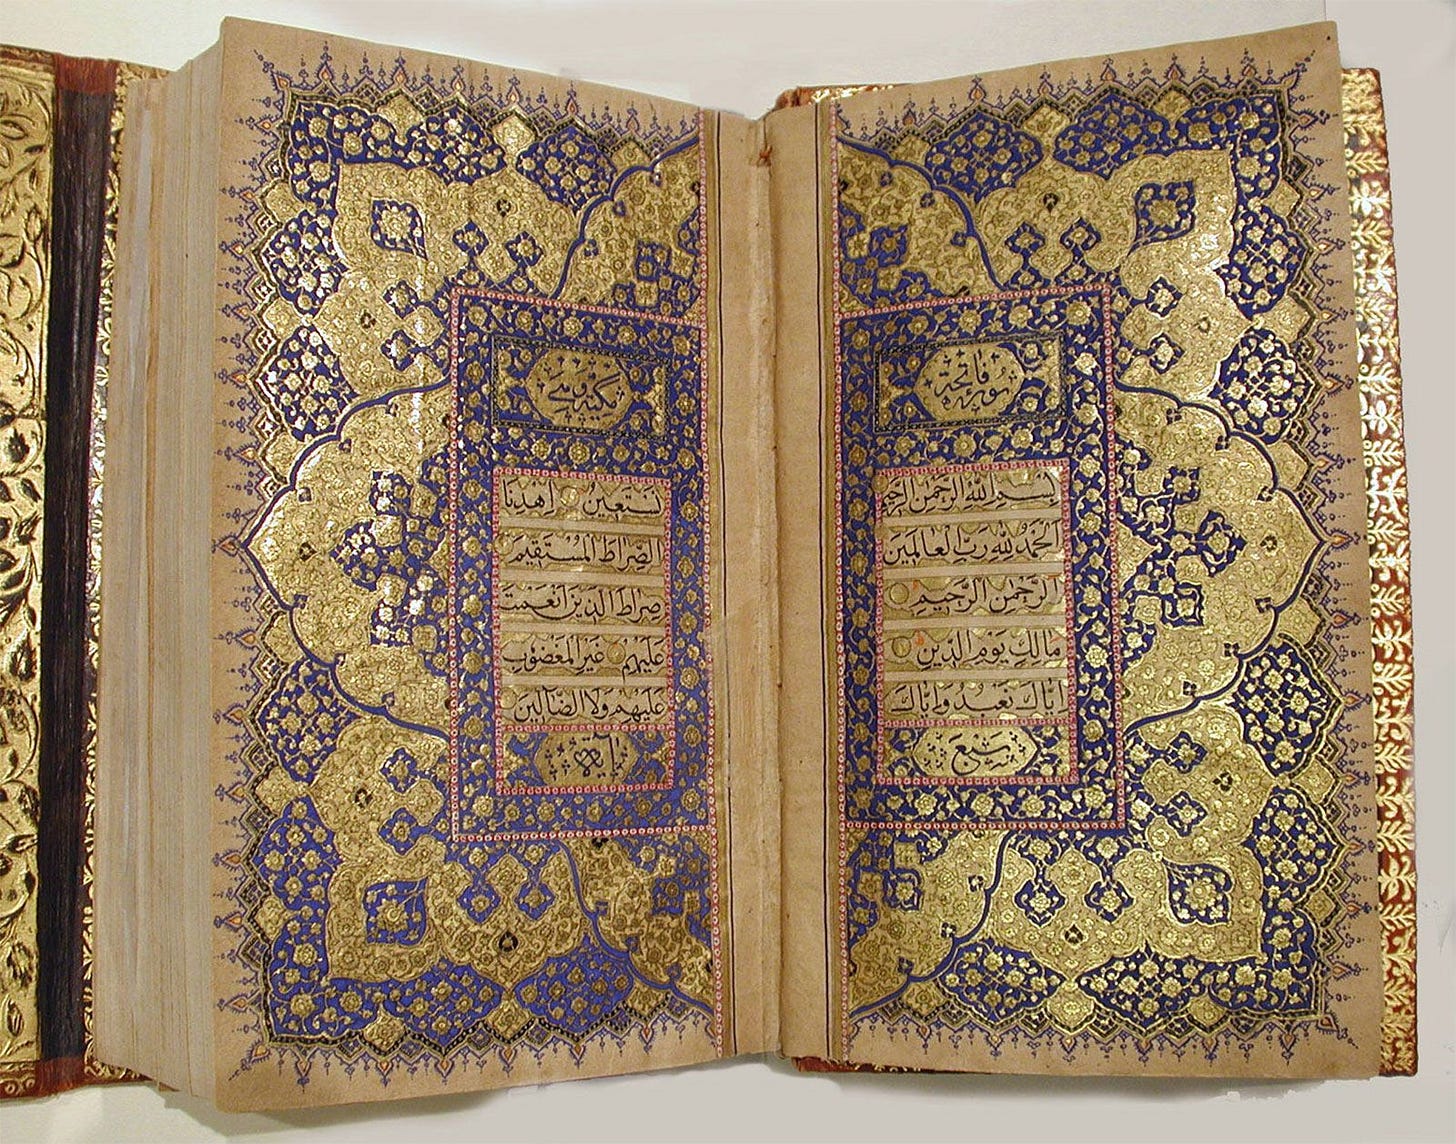 سورة فاتحة
بِسْمِ اللهِ الرَّحْمٰنِ الرَّحِيمِ
اَلْحَمْدُ لِلّٰهِ رَبِّ الْعَالَمِينَ
الرَّحْمٰنِ الرَّحِيمِ
مَالِكِ يَوْمِ الدِّينِ
اِيَّاكَ نَعْبُدُ وَاِيَّاكَ
سبع
مكية وهي
نَسْتَعِينُ اِهْدِنَا
الصِّرَاطَ الْمُسْتَقِيمَ
صِرَاطَ الَّذِينَ اَنْعَمْتَ
عَلَيْهِمْ غَيْرِ الْمَغْضُوبِ
عَلَيْهِمْ وَلَا الضَّالِّينَ
ايات